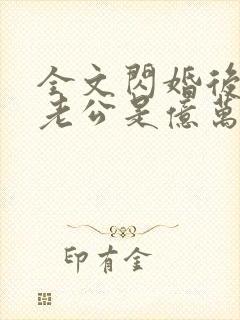 全文閃婚後
老公是億萬
印有金